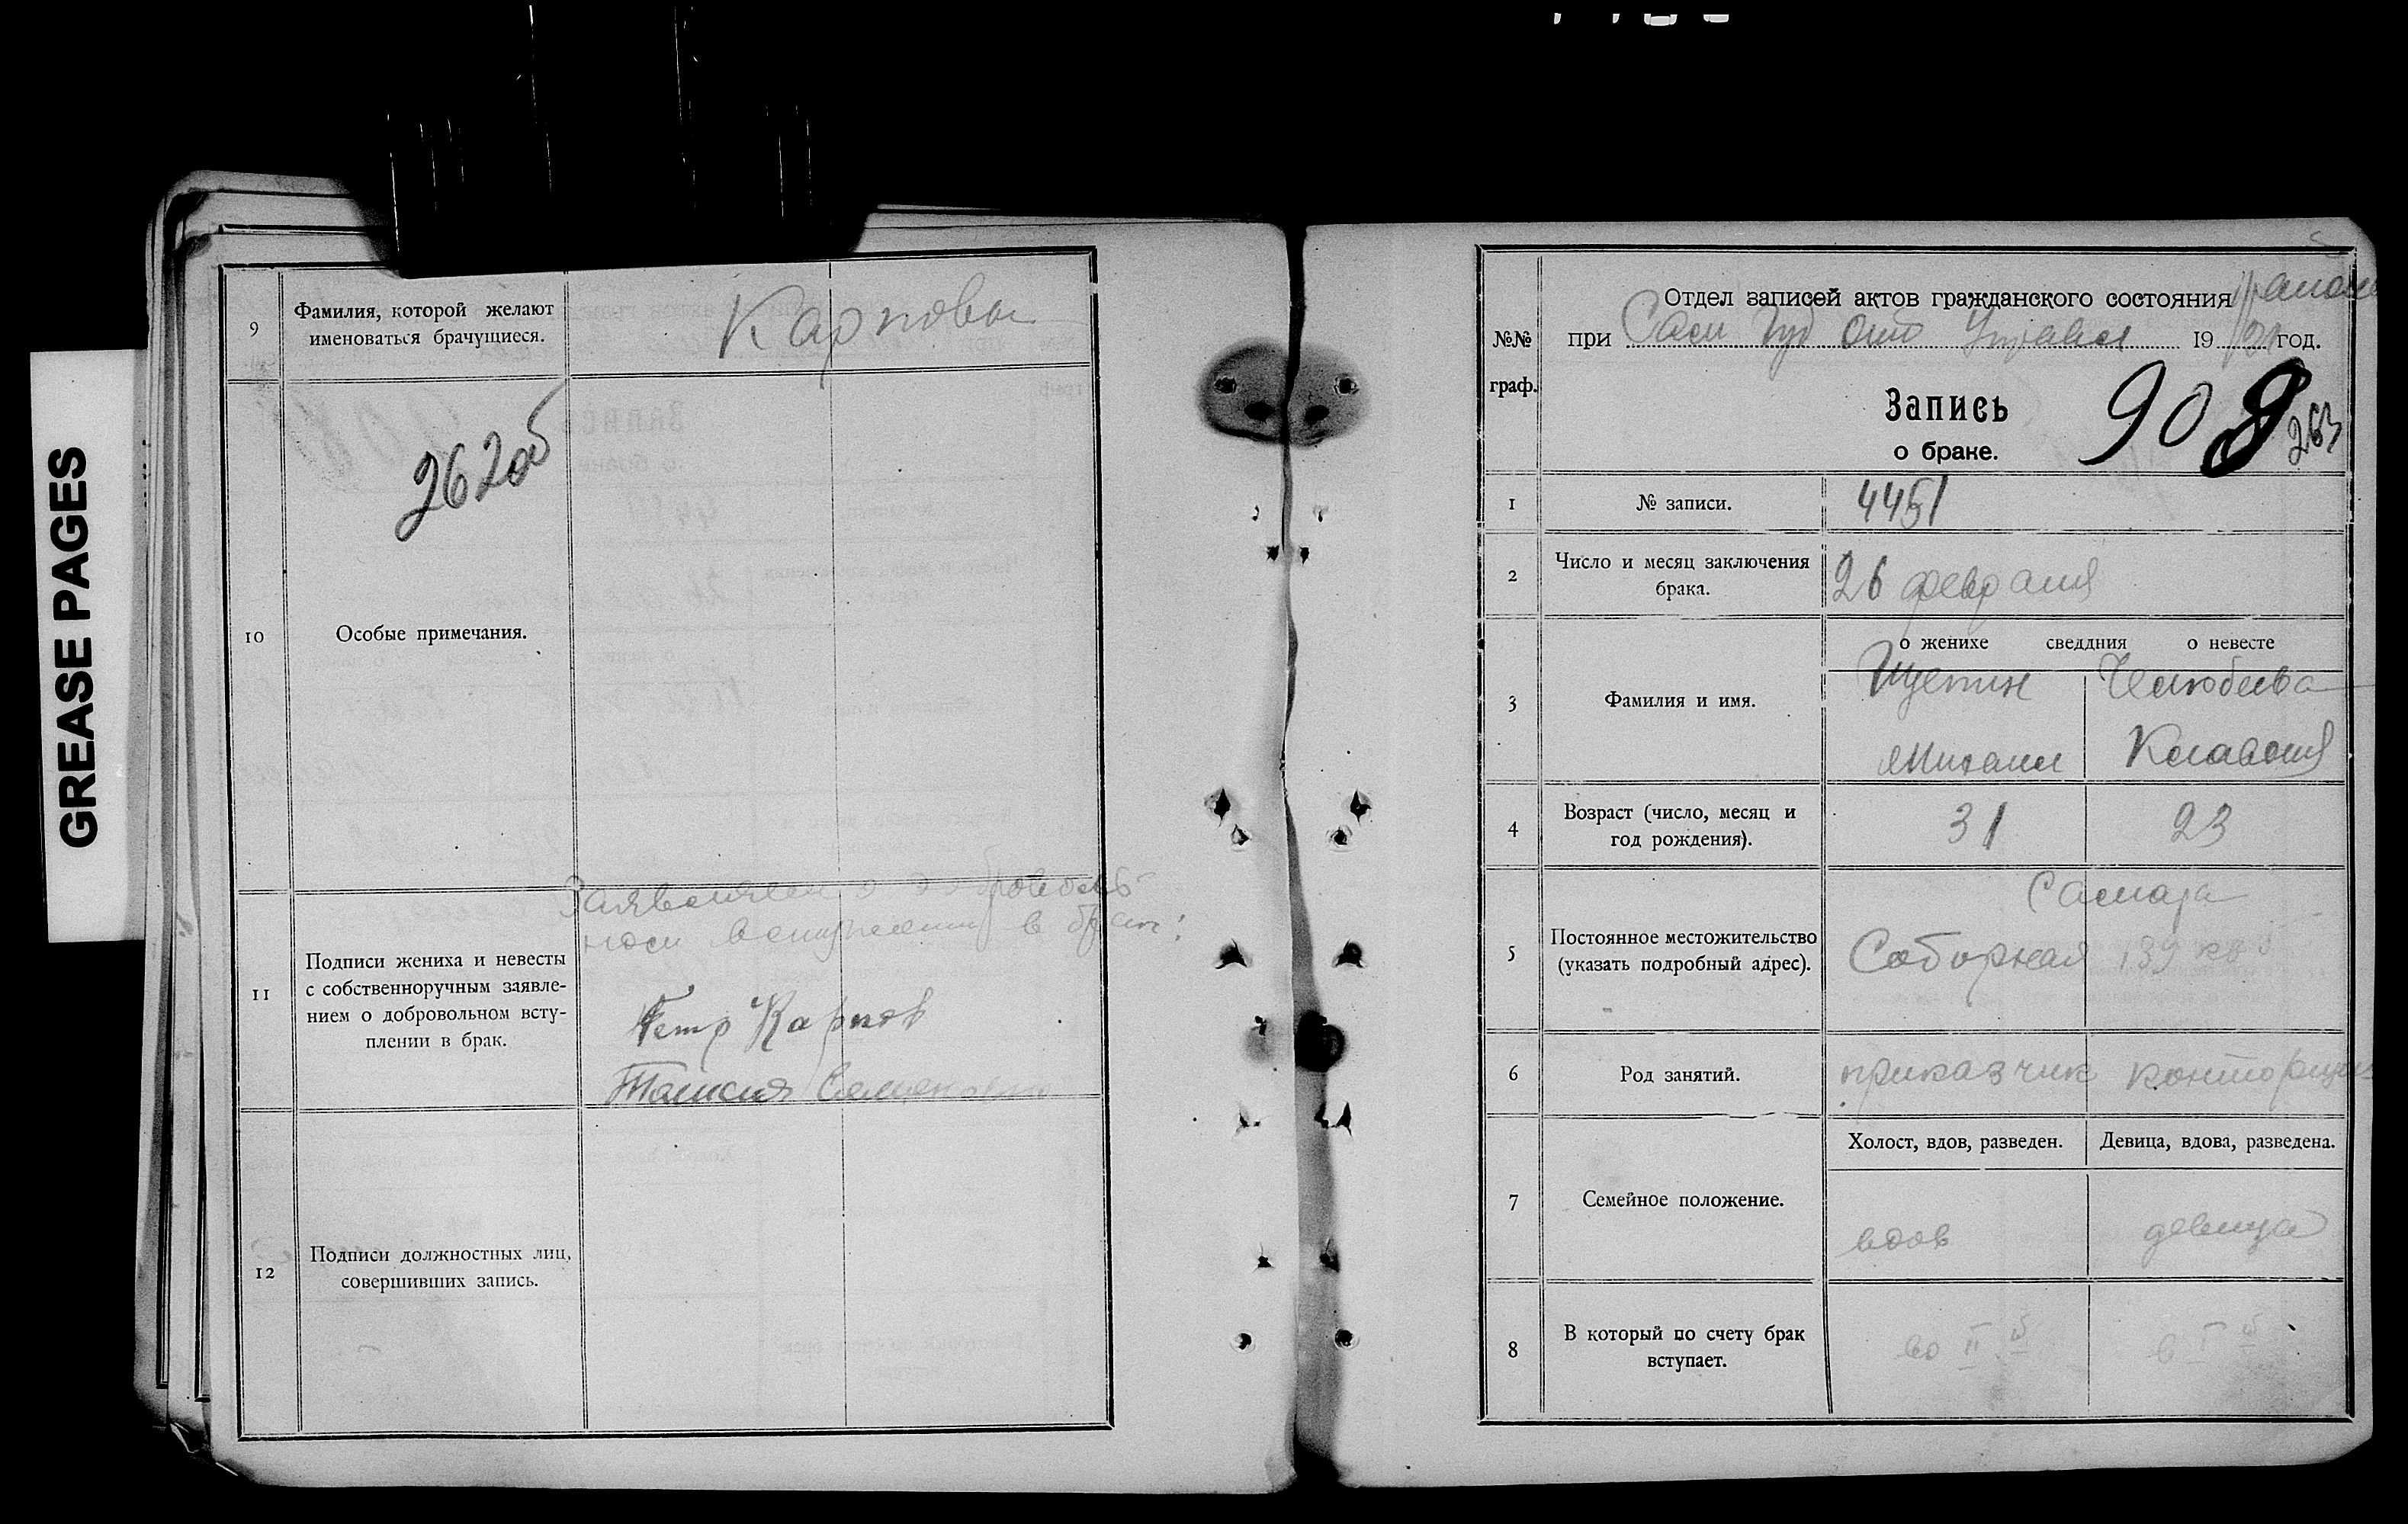 GREASE PAGES
9
Фамилия, которой желают
именоваться брачущиеся.
Карповы
262об
10
Особые примечания.
11
Подписи жениха и невесты
с собственноручным заявле-
нием о добровольном всту-
плении в брак.
в брак:
Петр Карпов
Таисия
12
Подписи должностных лиц,
совершивших запись.
№№
граф.
Отдел записей актов гражданского состояния
при Сам Губ Отд Управл 19 год.
Запись
о браке.
908
263
1
№ записи.
4451
2
Число и месяц заключения
брака.
26 февраля
о женихе сведдния о невесте
3
Фамилия и имя.
Щепин
Михаил
Клавдия
4
Возраст (число, месяц и
год рождения).
31
23
5
Постоянное местожительство
(указать подробный адрес).
Самара
Соборная 139 кв
6
Род занятий.
приказчик
7
Семейное положение.
Холост, вдов, разведен.
Девица, вдова, разведена.
вдов
девица
8
В который по счету брак
вступает.
во II й
в I й